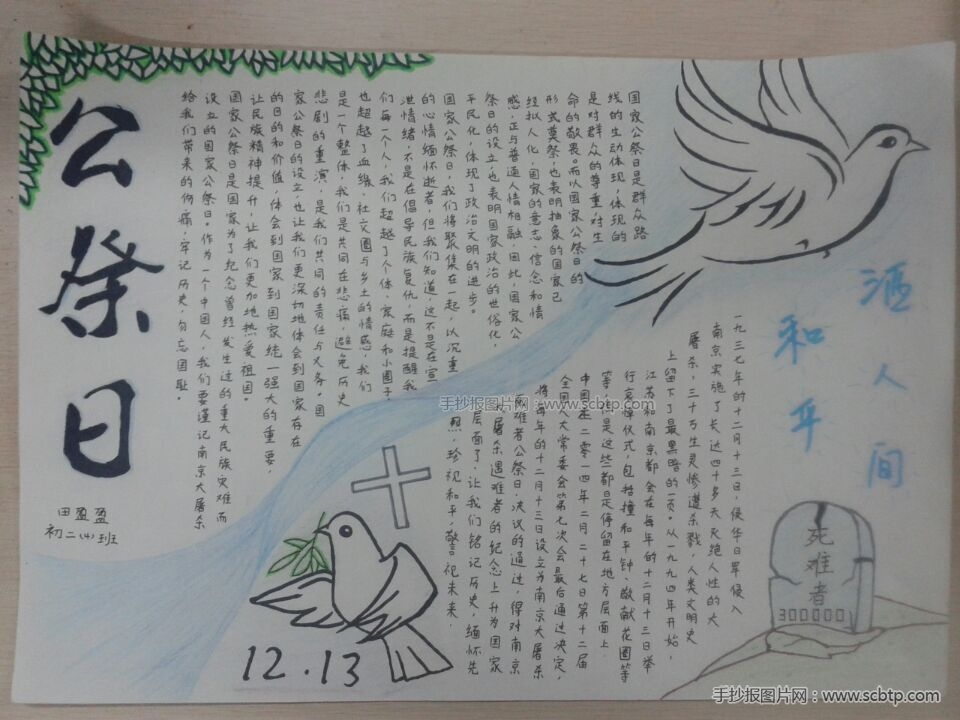 公祭日
田盈盈
初二(4)班
国家公祭日是群众路
线的生动体现，体现的
是对群众的尊重，对生
命的敬畏。而以国家公祭日的
形式奠祭，也表明抽象的国家已
经拟人化，国家的意志、信念和情
感，正与普通人情相融，因此，国家公
祭日的设立，也表明国家政治的世俗化，
平民化，体现了政治文明的进步。
国家公祭日，我们将聚集在一起，以沉重
的心情缅怀逝者，但我们知道，这不是在宣
泄情绪，不是在倡导民族复仇，而是提醒我
们每一个人，我们超越了个体、家庭和小圈子，
也超越了血缘、社交圈与乡土的情感，我们
是一个整体，我们是共同在悲痛，避免历史
悲剧的重演，是我们共同的责任与义务。国
家公祭日的设立，也让我们更深切地体会到国家存在
的目的和价值，体会到国家统一强大的重要，
让民族精神提升，让我们更加地热爱祖国。
国家公祭日是国家为了纪念曾经发生过的重大民族灾难而
设立的国家公祭日。作为一个中国人，我们要谨记南京大屠杀
给我们带来的伤痛，牢记历史，勿忘国耻。
洒人间
和平
一九三七年的十二月十三日，侵华日军侵入
南京实施了长达四十多天灭绝人性的大
屠杀，三十万生灵惨遭杀戮，人类文明史
上留下了最黑暗的一页。从一九九四年开始，
江苏和南京都会在每年的十二月十三日举
行哀悼仪式，包括撞和平钟、敬献花圈等
等，但是这些都是停留在地方层面上，
中国在二零一四年二月二十七日第十二届
全国人大常委会第七次会最后通过决定，
将每年的十二月十三日设立为南京大屠杀
死难者公祭日，决议的通过，得对南京
大屠杀遇难者的纪念上升为国家
层面了，让我们铭记历史，缅怀先
烈，珍视和平，警视未来，
死难者
300000
12.13
手抄报图片网：www.scbtp.com
手抄报图片网：www.scbtp.com